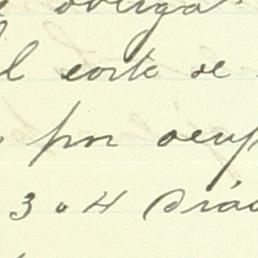 obliga
el corte de
por ocup
3 o 4 días